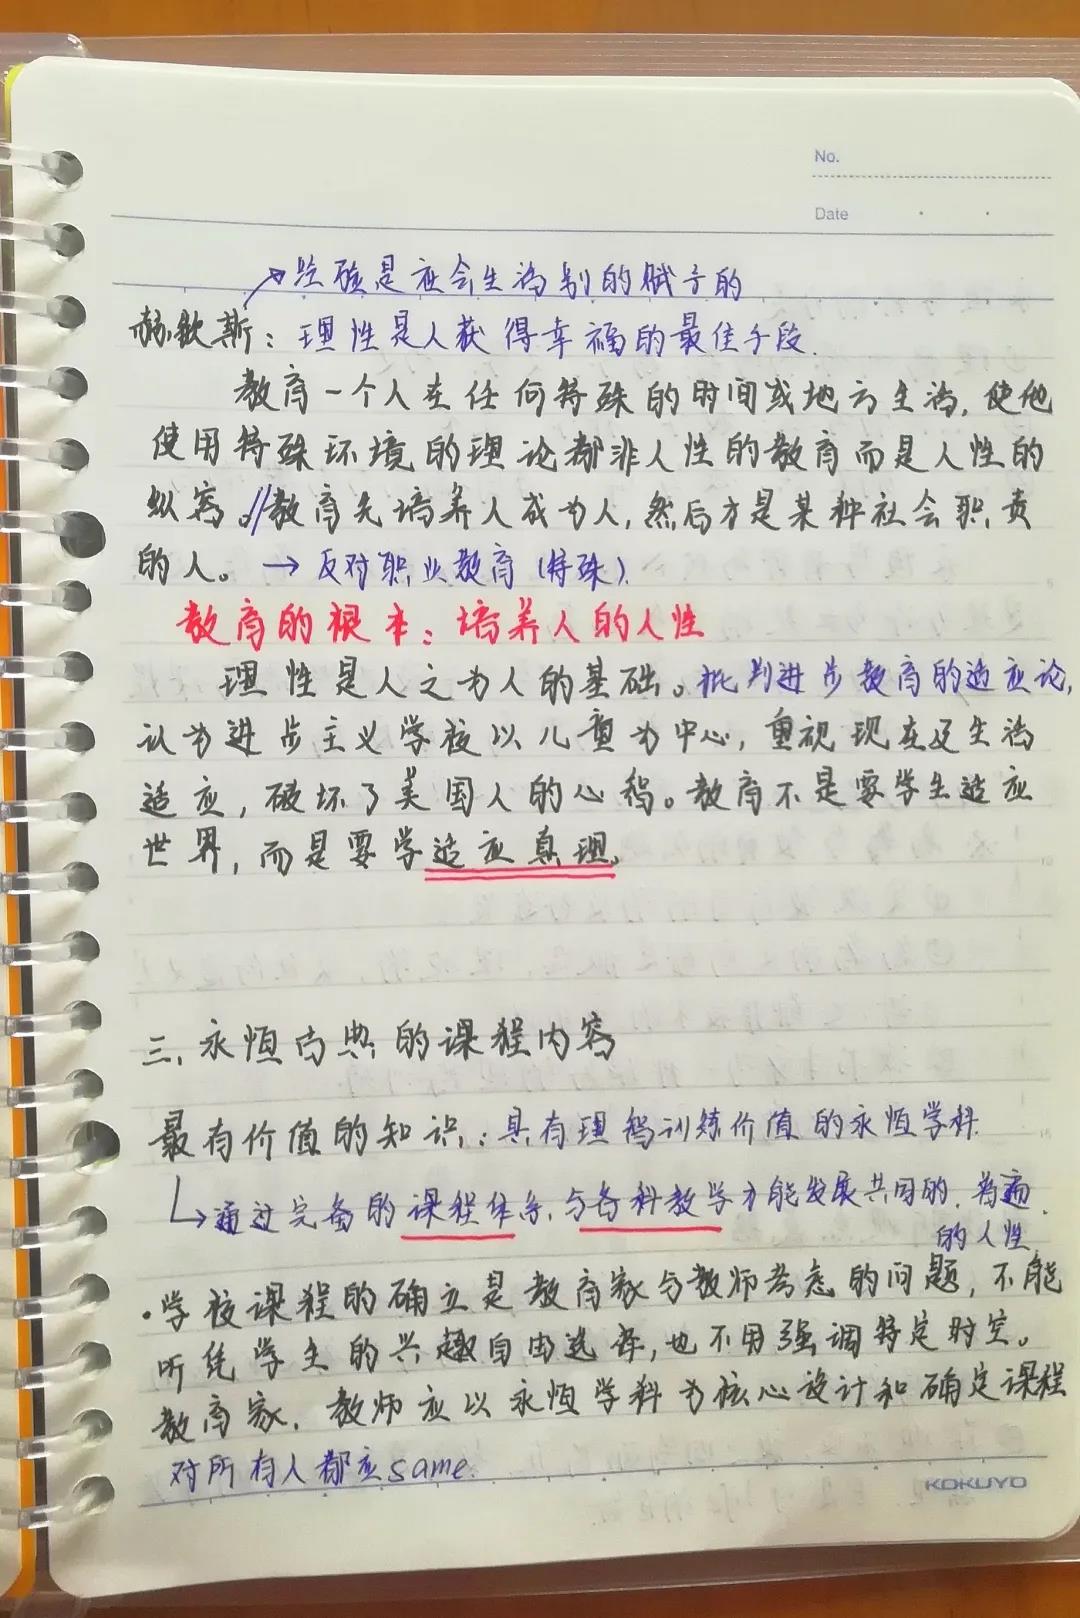 No.
Date
是应会生活别的赋予的
赫钦斯：理性是人获得幸福的最佳手段.
教育一个人在任何特殊的时间或地方生活,使他
使用特殊环境的理论都非人性的教育而是人性的
纵容。//教育先培养人成为人,然后才是某种社会职责
的人。→反对职业教育(特殊).
教育的根本：培养人的人性
理性是人之为人的基础。批判进步教育的适应论,
认为进步主义学校以儿童为中心,重视现在及生活
适应,破坏了美国人的心智。教育不是要学生适应
世界,而是要学适应真理.
三.永恒古典的课程内容
最有价值的知识：具有理智训练价值的永恒学科
↳通过完备的课程体系,与各科教学才能发展共同的.普遍
的人性
·学校课程的确立是教育家与教师考虑的问题,不能
听凭学生的兴趣自由选择,也不用强调特定时空。
教育家.教师应以永恒学科为核心设计和确定课程
对所有人都应same.
KOKUYO